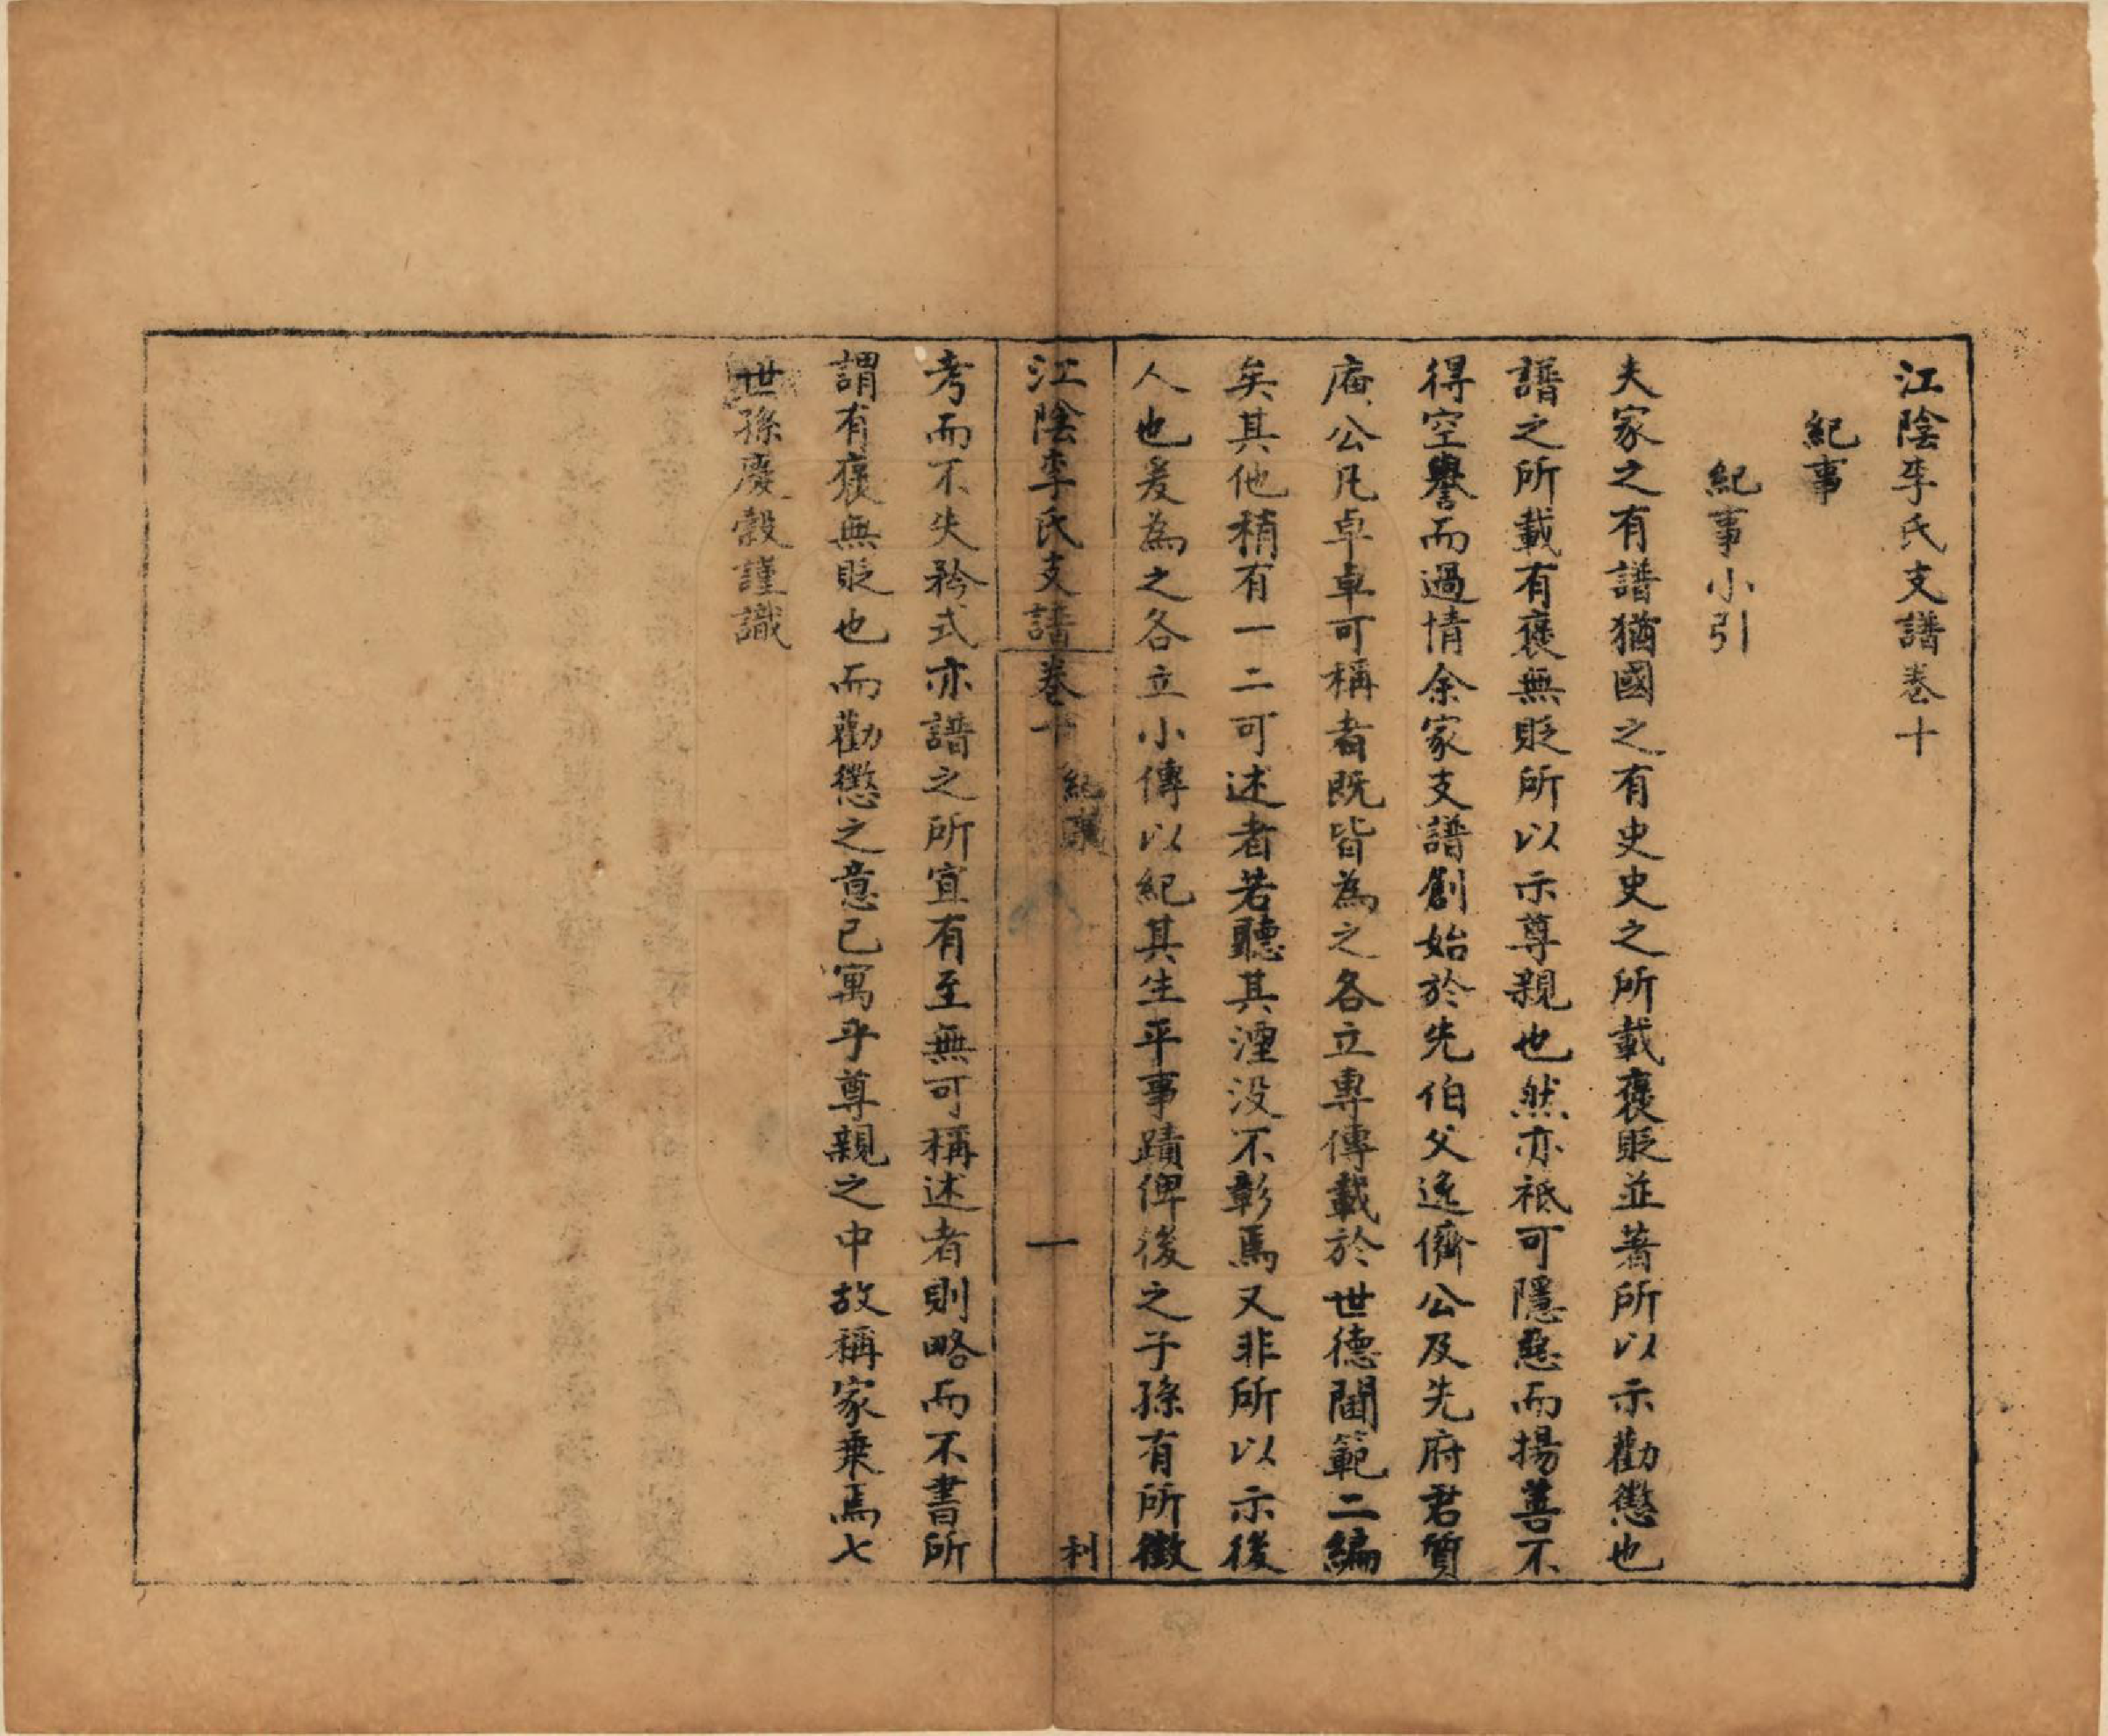 江陰李氏支譜卷十
紀事
紀事小引
夫家之有譜猶國之有史史之所載褒貶並著所以示勸懲也
譜之所載有褒無貶所以示尊親也然亦祇可隱惡而揚善不
得空譽而過情余家支譜創始於先伯父逸儕公及先府君質
庵公凡卓卓可稱者既皆為之各立專傳載於世德閫範二編
矣其他稍有一二可述者若聽其湮沒不彰焉又非所以示後
人也爰為之各立小傳以紀其生平事蹟俾後之子孫有所徵
江陰李氏支譜卷十 紀事 一 利
考而不失矜式亦譜之所宜有至無可稱述者則略而不書所
謂有褒無貶也而勸懲之意已寓乎尊親之中故稱家乘焉七
世孫慶穀謹識